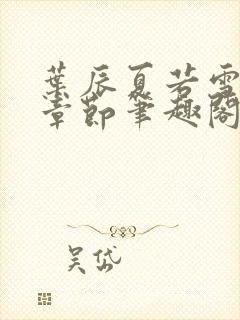 葉辰夏若雪
章節筆趣閣
吴岱